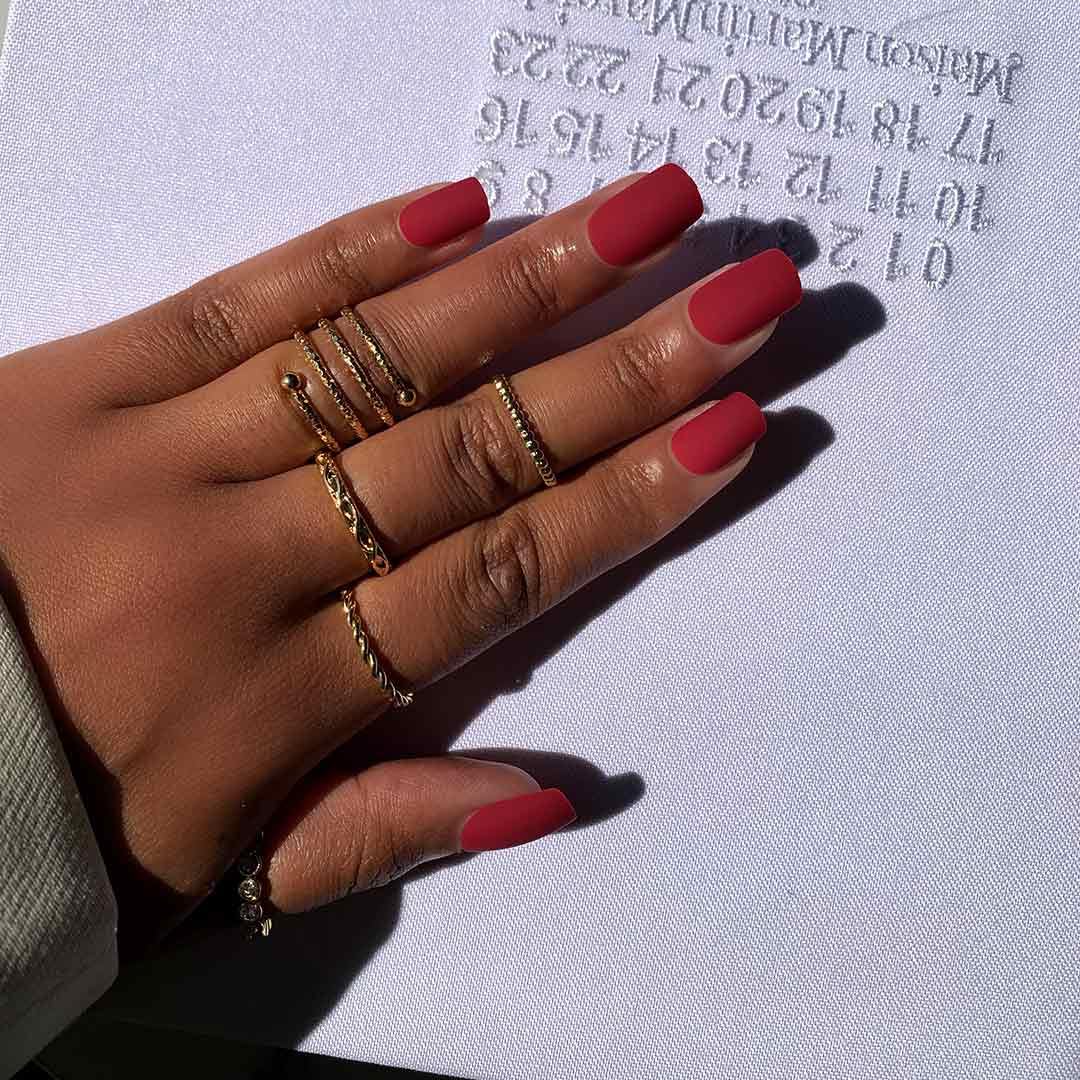 0 1 2 3 4 8 9
10 11 12 13 14 15 16
17 18 19 20 21 22 23
Maison Martin